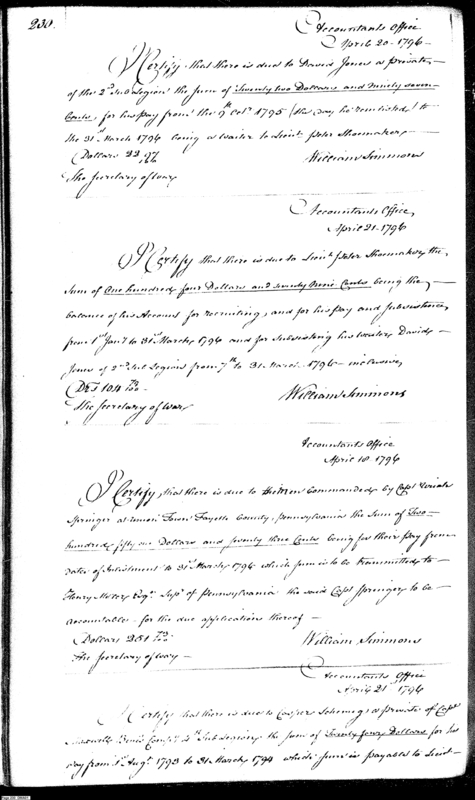 230.
Accountants Office
April 20 - 1796 -
I Certify, that there is due to David Jones a private
of the 2d Sub Legion the sum of Twenty two Dollars and ninety seven
Cents, for his pay from the 9th Octr. 1795 (the day he reinlisted) to
the 31st March 1796 being a waiter to Lieut. Peter Shoemaker
Dollars 22 97/100
William Simmons
The Secretary of War
Accountants Office,
April 21 - 1796
I Certify that there is due to Lieut Peter Shoemaker, the
sum of One hundred four Dollars and seventy three Cents being the
balance of his Account for recruiting, and for his pay and Subsistence,
from 1st Jany. to 31st March, 1796 and for Subsisting his waiter David
Jones of 2nd Sub Legion from 7th to 31 March 1796 - inclusive,
Drs 104 73/100
William Simmons
The Secretary of War
Accountants Office
April 18, 1796
I Certify, that there is due to the Men Commanded by Capt Uriah
Springer at Union Town Fayette County, Pennsylvania the sum of Two
hundred fifty one Dollars and seventy three Cents being for their pay from
date of Inlistment to 31st March 1796 which sum is to be transmitted to
Henry Miller Esqr. Supr. of Pennsylvania the said Capt Springer to be
accountable for the due application thereof
Dollars 251 73/100
William Simmons
The Secretary of War
Accountants Office
April 21st 1796
I Certify that there is due to Casper a private of Capt
Comp'y Sub Legion, the sum of Twenty four Dollars for his
pay from 1st Augt. 1793 to 31 March 1794 which sum is payable to Lieut